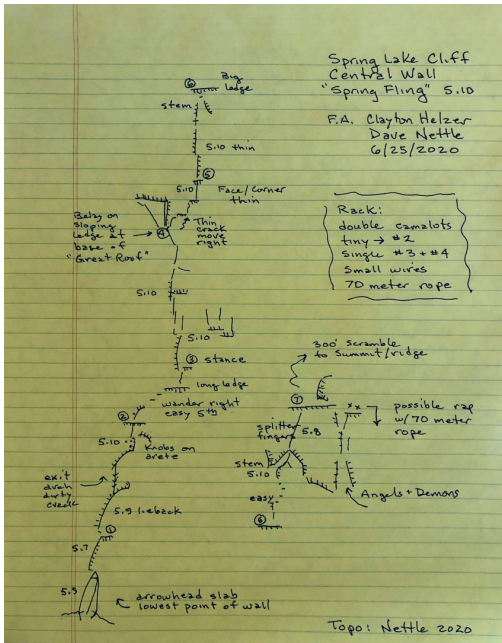 Spring Lake Cliff
Central Wall
"Spring Fling" 5.10
F.A. Clayton Helzer
Dave Nettle
6/25/2020
Rack:
double camalots
tiny → #2
single #3 + #4
Small wires
70 meter rope
6
Big
ledge
stem
5.10 thin
5
5.10
Face/corner
thin
Belay on
sloping
ledge at
base of
"Great Roof"
4
Thin
crack
move
right
5.10
5.10
3 stance
long ledge
wander right
easy 5th
2
5.10
Knobs on
arete
exit
dirty
5.9 lieback
1
5.7
5.5
arrowhead slab
lowest point of wall
300' Scramble
to Summit/ridge
7
xx
possible rap
w/70 meter
rope
splitter
fingers
5.8
stem
5.10
easy
6
Angels + Demons
Topo: Nettle 2020